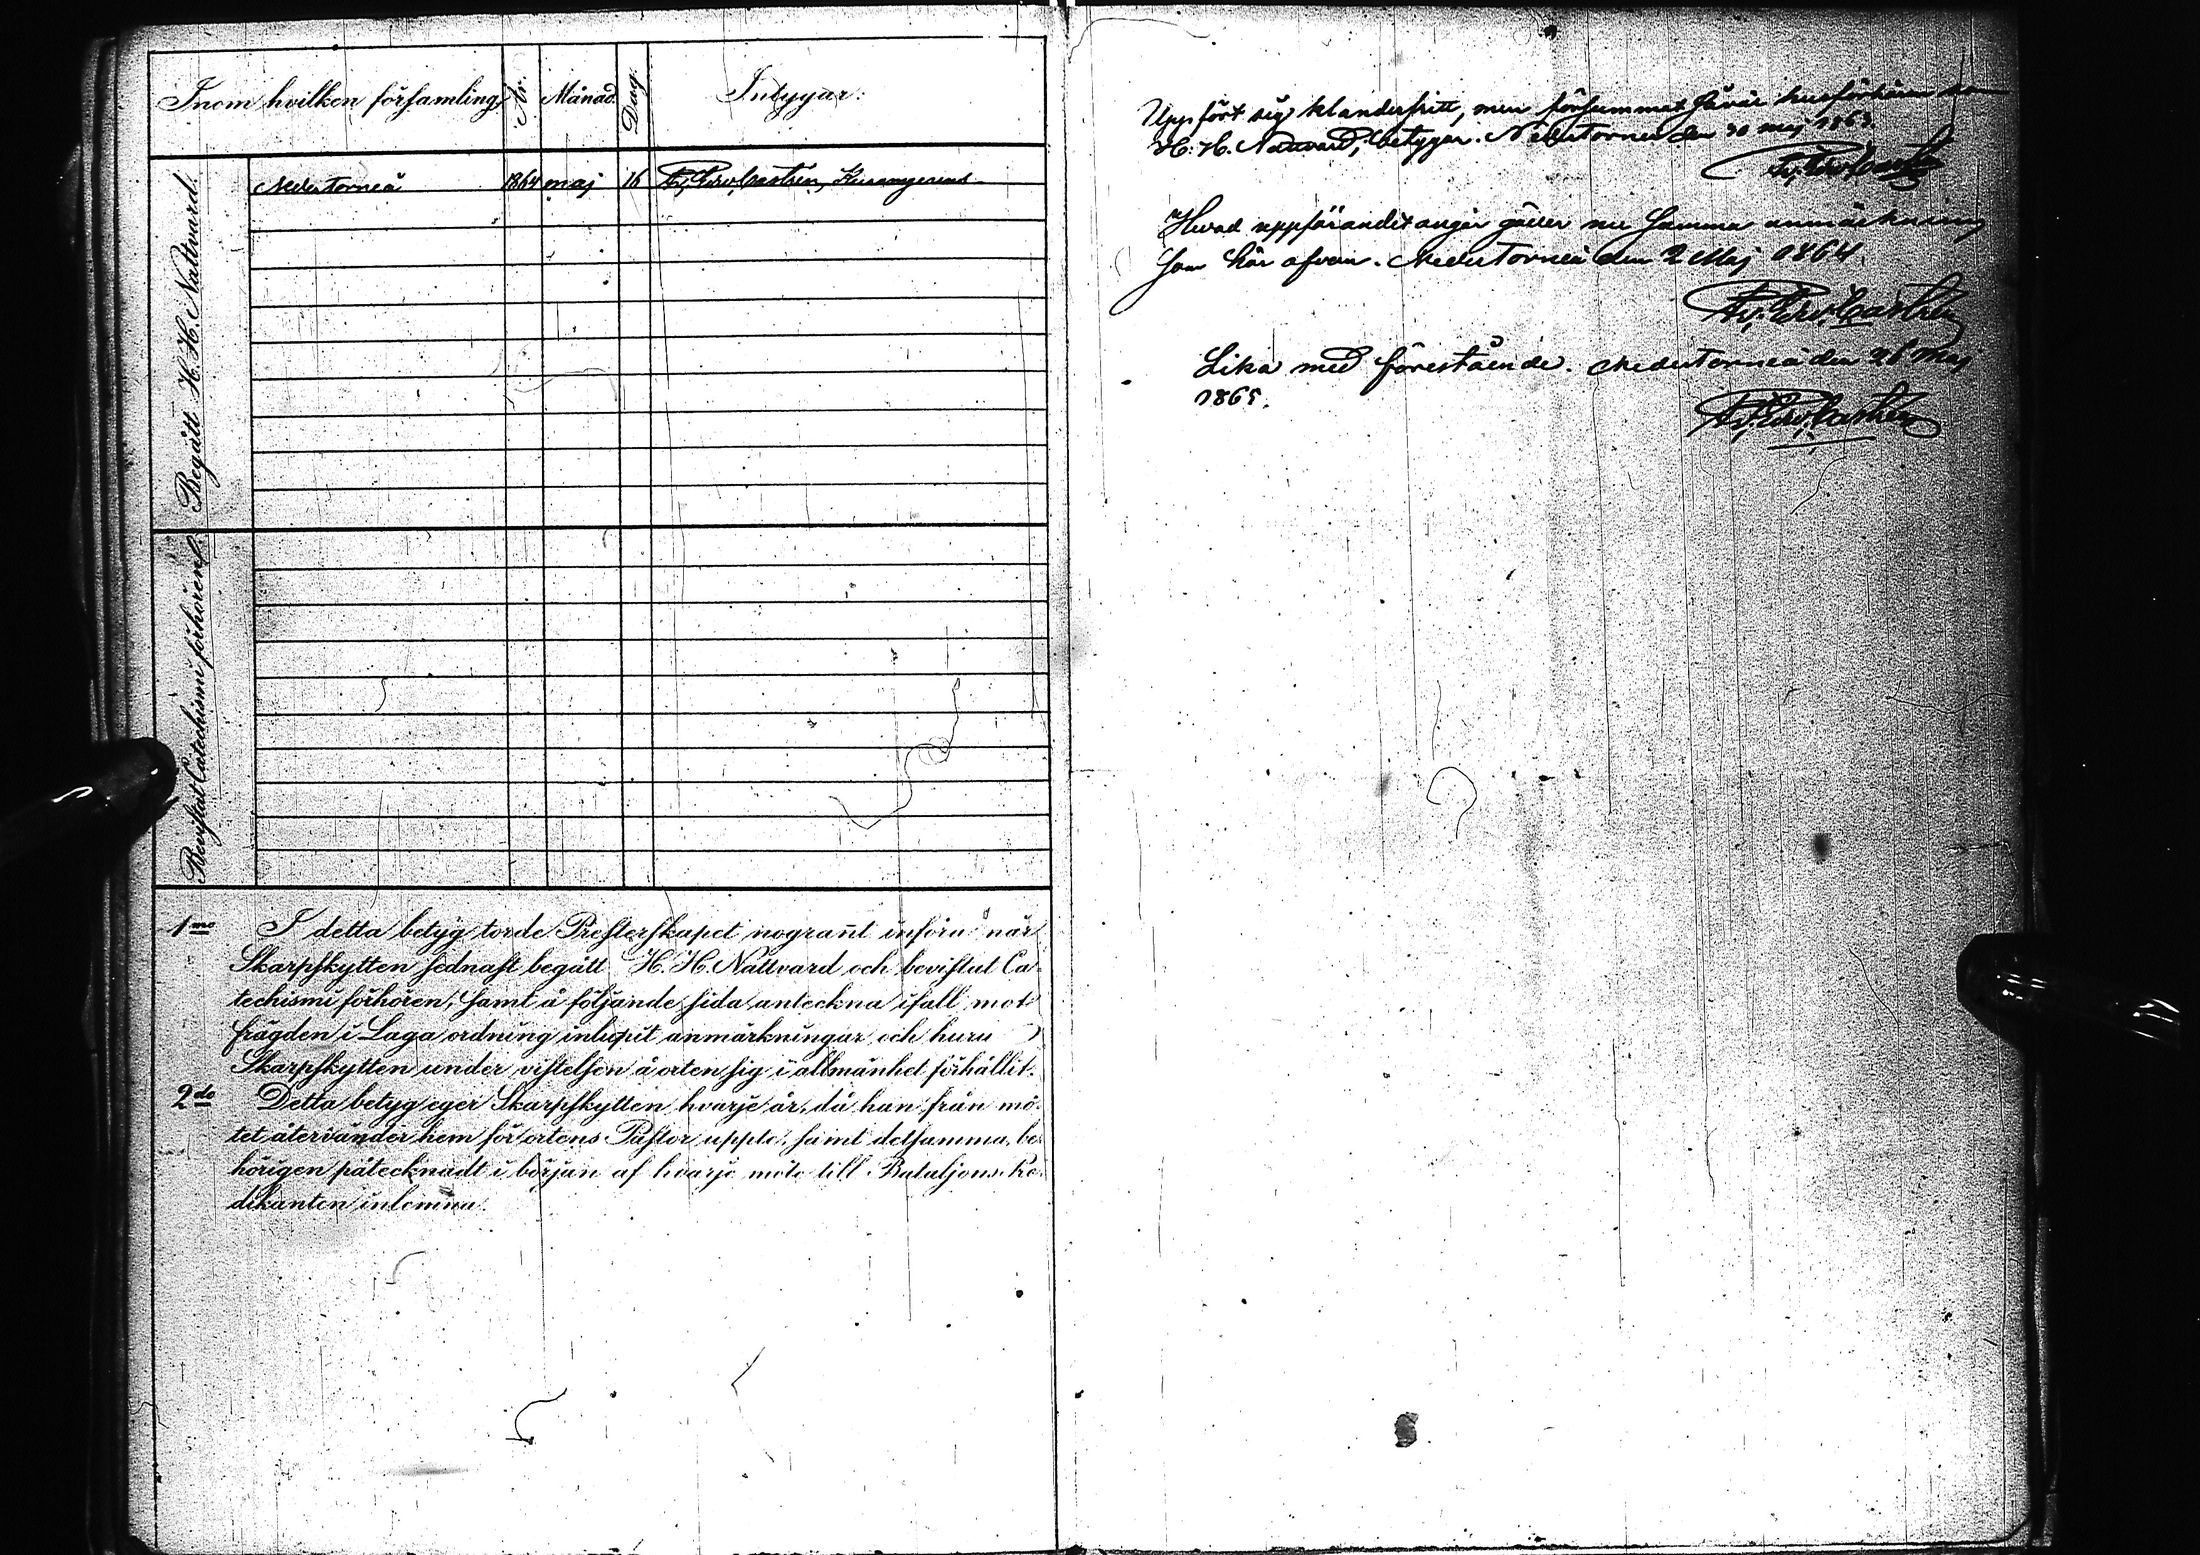 Inom hvilken församling
År.
Månad.
Dag.
Intygar:
Begått H. H. Nattvard.
Nedertorneå 1864 maj 16
Bevistat Catechismi förhören.
1mo I detta betyg torde Presterskapet nogrant införa när
Skarpskytten sednast begått H. H. Nattvard och bevistat Ca-
techismi förhören, samt å följande sida anteckna ifall mot
frägden i Laga ordning inlupit anmärkningar och huru
Skarpskytten under vistelsen å orten sig i allmänhet förhållit.
2do Detta betyg eger Skarpskytten hvarje år, då han från mö-
tet återvänder hem för ortens Pastor uppte, samt detsamma, be-
hörigen påtecknadt i början af hvarje möte till Bataljons Pre-
dikanten inlemna.
Uppfört sig klanderfritt, men försummat såväl husförhören som
H. H. Nattvard, betygar. Nedertorneå den 30 maj 1863.
Hvad uppförandet angår gäller nu samma anmärkning
som här ofvan. Nedertorneå den 2 Maj 1864.
Lika med förestående. Nedertorneå den 28 Maj
1865.